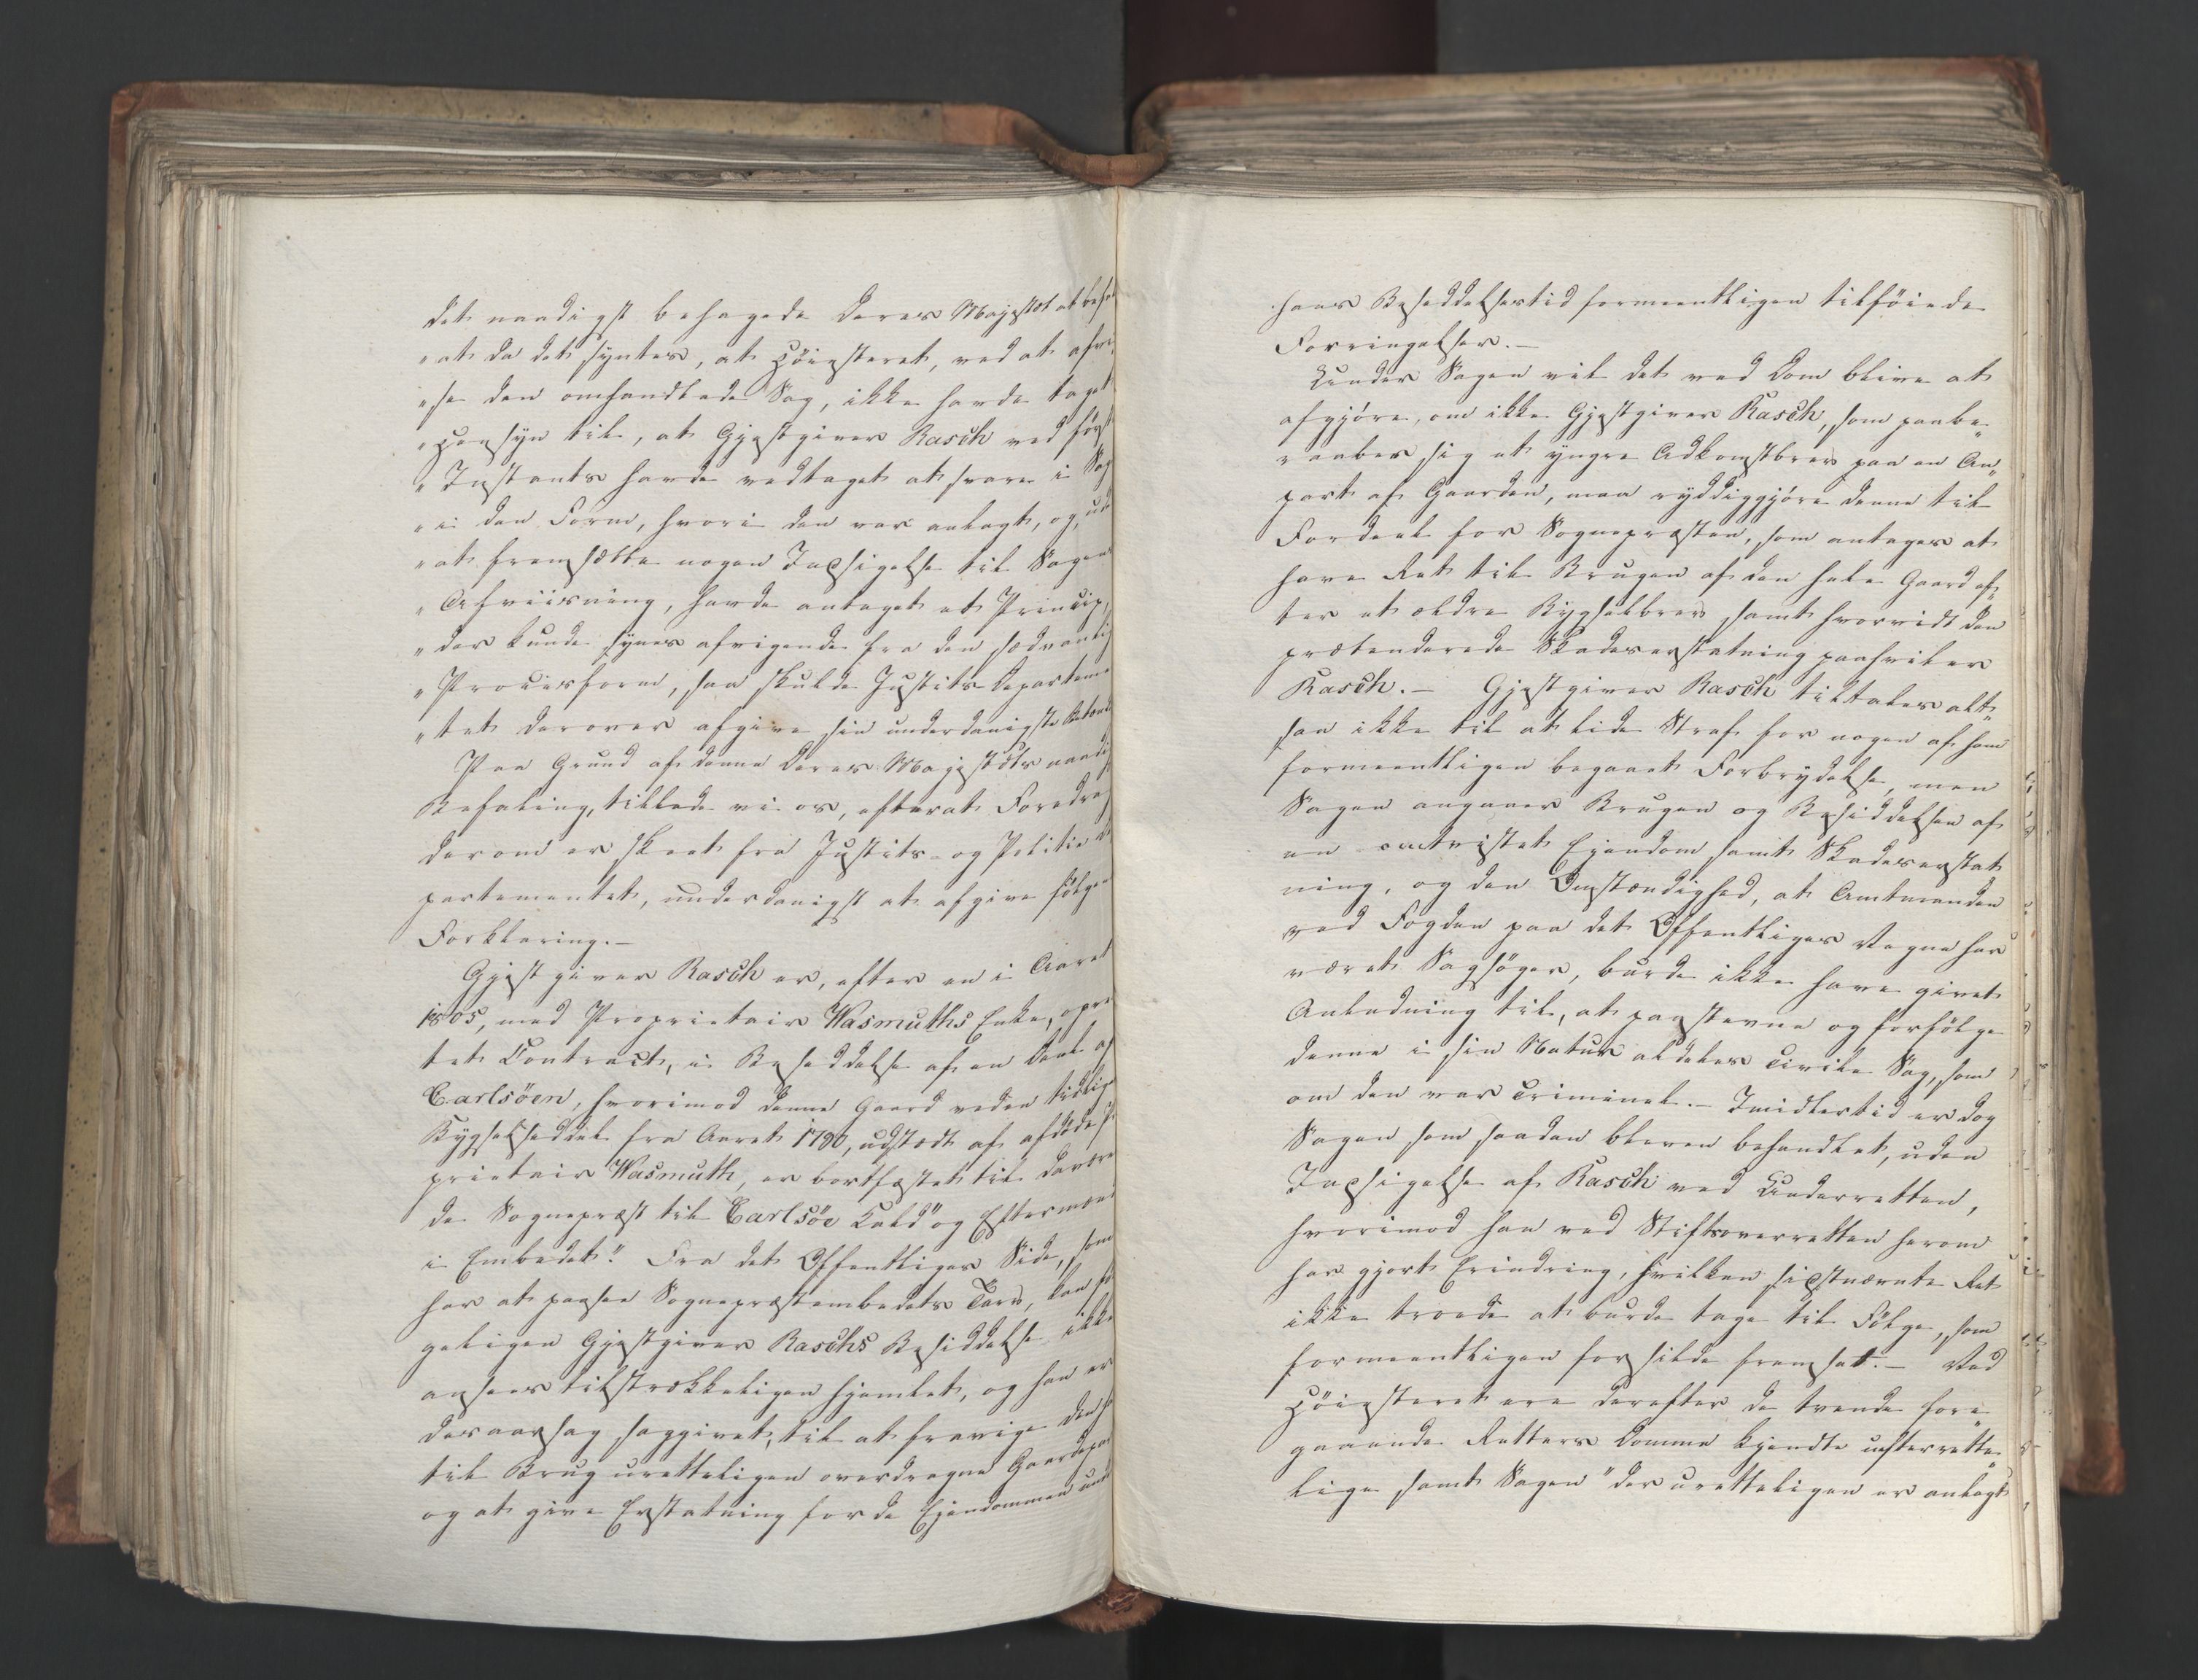 det naadigst behagede Deres Majestæt at befa
"at da det syntes, at Høiesteret, ved at afvi
"se den omhandlede Sag, ikke havde taget
"Hensyn til, at Gjæstgiver Rasch ved første
"Instants havde vedtaget at svare i Sag
"i den Form, hvori den var anlagt, og, ude
"at fremsætte nogen Indsigelse til Sagens
"Afviisning, havde antaget et Princip,
"der kunde synes afvigende fra den sædvanlig
"Procesform, saa skulde Justits-Departeme
"tet derover afgive sin underdanigste Betænk
Paa Grund af denne Deres Majestæts naadig
Befaling, tillade vi os, efterat Foredrag
derom er skeet fra Justits- og Politie De
partementet, underdanigst at afgive følgen
Forklaring.-
Gjæstgiver Rasch er, efter en i Aaret
1805, med Proprietair Wasmuths Enke, opret
tet Contract, i Besiddelse af en Deel af
Carlsöen, hvorimod denne Gaard veden tidlig
Bygselseddel fra Aaret 1790, udstædt af afdøde P
prietair Wasmuth, er bortfæstet til daværen
de Sognepræst til Carlsöe Kald "og Eftermænd
i Embedet." Fra det Offentliges Side, som
har at paasee Sognepræstembedets Tarv, kan fø
geligen Gjæstgiver Raschs Besiddelse ikke
ansees tilstrækkeligen hjemlet, og han er
desaarsag saggivet, til at fravige den h
til Brug uretteligen overdragne Gaardepa
og at give Erstatning for de Ejendommen und
hans Besiddelsestid formeentligen tilføiede
Forringelser.-
Under Sagen vil det ved Dom blive at
afgjøre, om ikke Gjæstgiver Rasch, som paabe„
„raaber sig et yngre Adkomstbrev paa en An„
part af Gaarden, maa ryddiggjøre denne til
Fordeel for Sognepræsten, som antages at
have Ret til Brugen af den hele Gaard ef„
ter et ældre Bygselbrev, samt hvorvidt den
prætenderede Skadeserstatning paahviler
Rasch.- Gjæstgiver Rasch tiltales alt„
saa ikke til at lide Straf for nogen af ham
formeentligen begaaet Forbrydelse, men
Sagen angaaer Brugen og Besiddelsen af
en omtvistet Ejendom samt Skadeserstat
ning, og den Omstændighed, at Amtmanden
ved Fogden paa det Offentliges Vegne har
været Sagsøger, burde ikke have givet
Anledning til, at paastævne og forfølge
denne i sin Natur aldeles civile Sag, som
om den var criminel.- Imidlertid er dog
Sagen som saadan bleven behandlet, uden
Indsigelse af Rasch ved Underretten,
hvorimod han ved Stiftsoverretten herom
har gjort Erindring, hvilken sidstnævnte Ret
ikke troede at burde tage til Følge, som
formeentligen forsilde fremsat.- Ved
Høiesteret ere derefter de tvende fore„
gaaende Retters Domme kjendte uefterrette„
lige samt Sagen "der uretteligen er anlagt